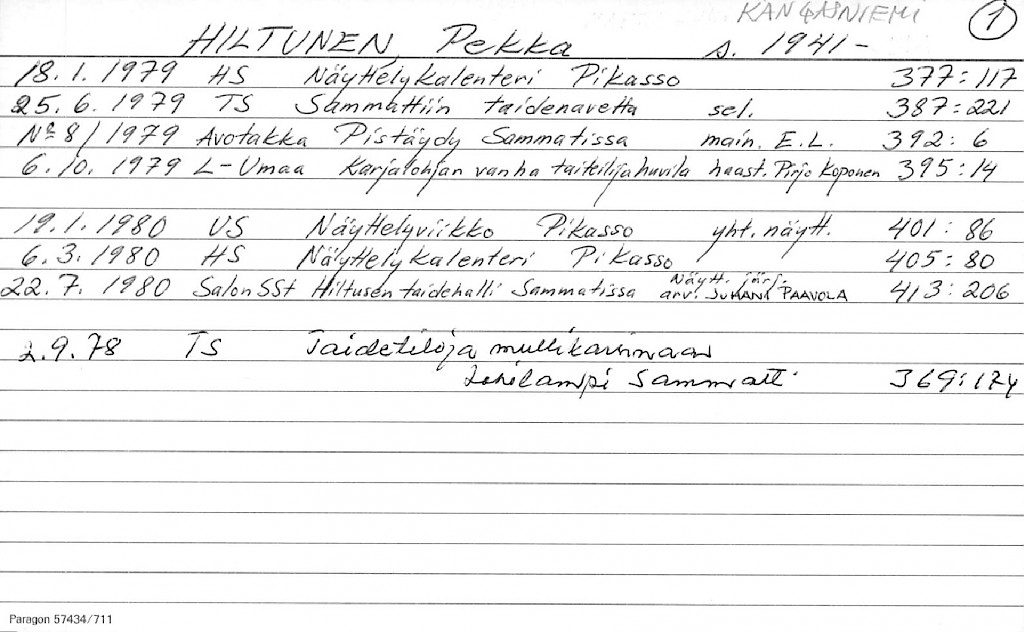 KANGASNIEMI 1
HILTUNEN, Pekka s. 1941-
18. 1. 1979 HS Näyttelykalenteri Pikasso 377:117
25. 6. 1979 TS Sammattiin taidenavetta sel. 387:221
No 8/1979 Avotakka Pistäydy Sammatissa main. E.L. 392:6
6. 10. 1979 L-Umaa Karjalohjan vanha taiteilijahuvila haast. Pirjo Koponen 395:14
19. 1. 1980 US Näyttelyviikko Pikasso yht. näytt. 401:86
6. 3. 1980 HS Näyttelykalenteri Pikasso 405:80
Näytt. järj.
22. 7. 1980 SalonSSt Hiltusen taidehalli Sammatissa arv. JUHANI PAAVOLA 413:206
2.9.78 TS Taidetiloja
Sammatti 369:174
Paragon 57434/711